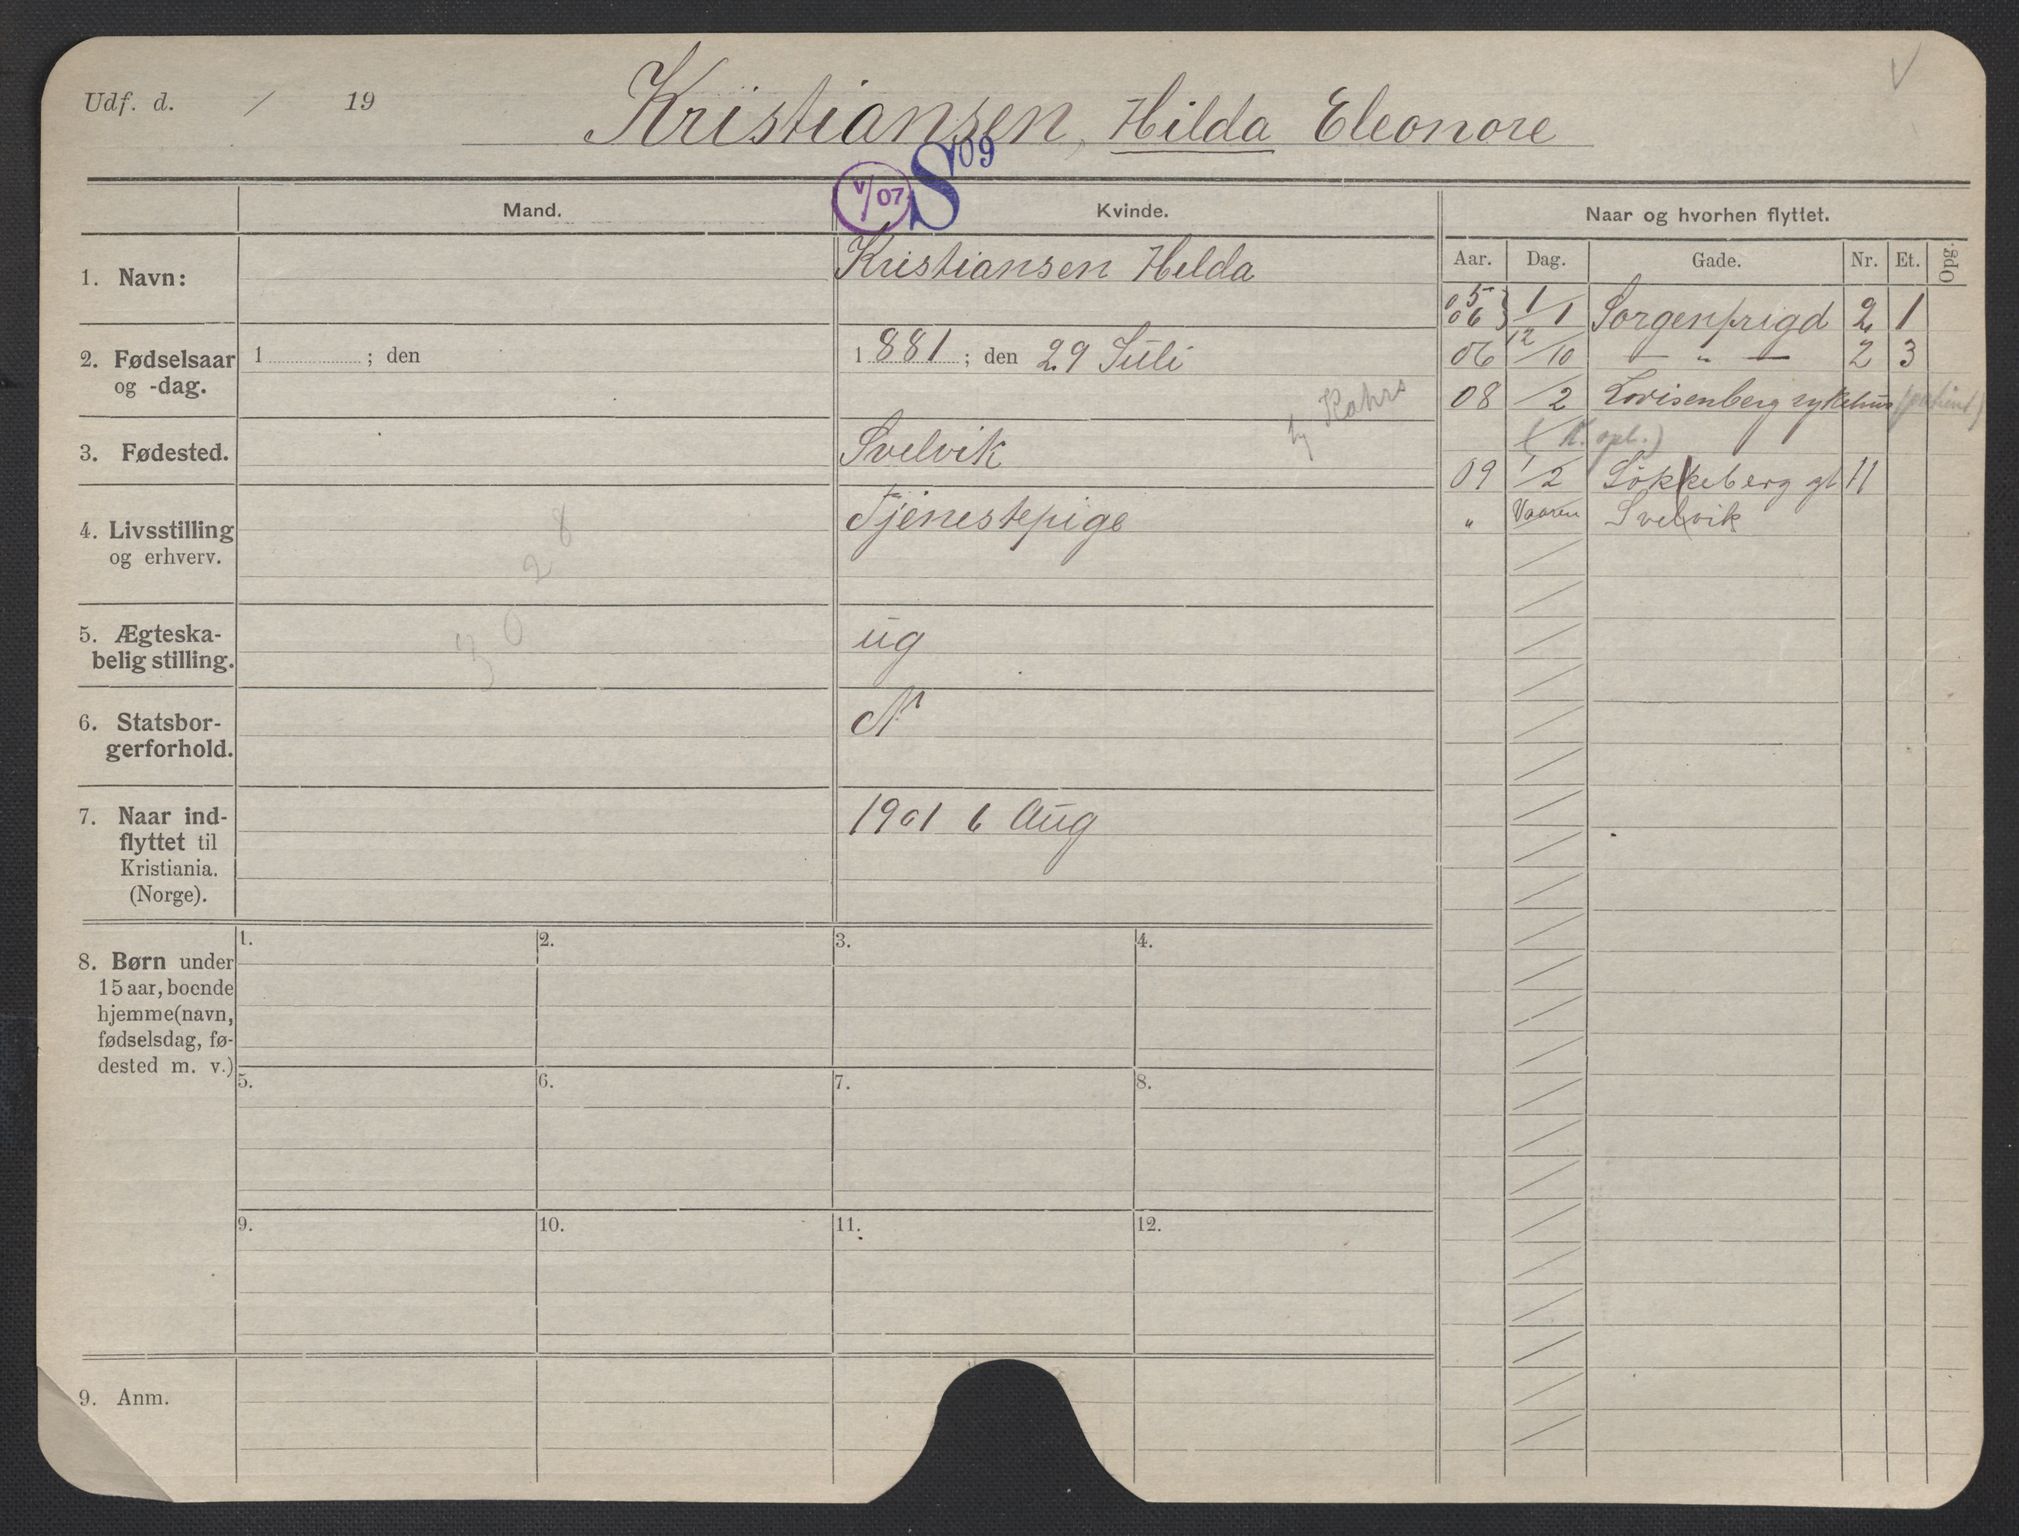 Udf. d. / 19
Kristiansen, Hilda Eleonore
V
V/07 S 09
Mand.
Kvinde.
Naar og hvorhen flyttet.
Aar. Dag. Gade. Nr. Et. Opg.
1. Navn:
Kristiansen Hilda
2. Fødselsaar
og -dag.
1 ; den
1881 ; den 29 Juli
3. Fødested.
Svelvik
4. Livsstilling
og erhverv.
Tjenestepige
5. Ægteska-
belig stilling.
ug
6. Statsbor-
gerforhold.
N
7. Naar ind-
flyttet til
Kristiania.
(Norge).
1901 6 Aug
3028
05 06 } 1/1 Sorgenfrigd 2 1
06 12/10 — „ — 2 3
08 /2 Lovisenberg sykehus (patient)
(K. opl.)
09 1/2 Løkkeberg gt 11
„ Vaaren Svelvik
8. Børn under
15 aar, boende
hjemme (navn,
fødselsdag, fø-
dested m. v.)
1. 2. 3. 4.
5. 6. 7. 8.
9. 10. 11. 12.
9. Anm.